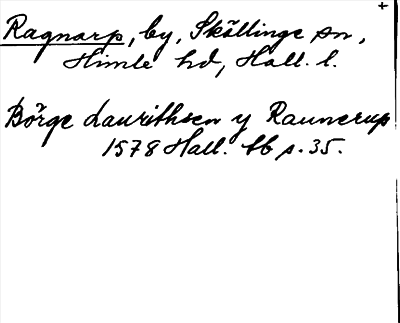 +
Ragnarp, by, Skällinge sn,
Himle hd, Hall. l.
Börge Laurithsen y Raunerup
1578 Hall. tb s. 35.